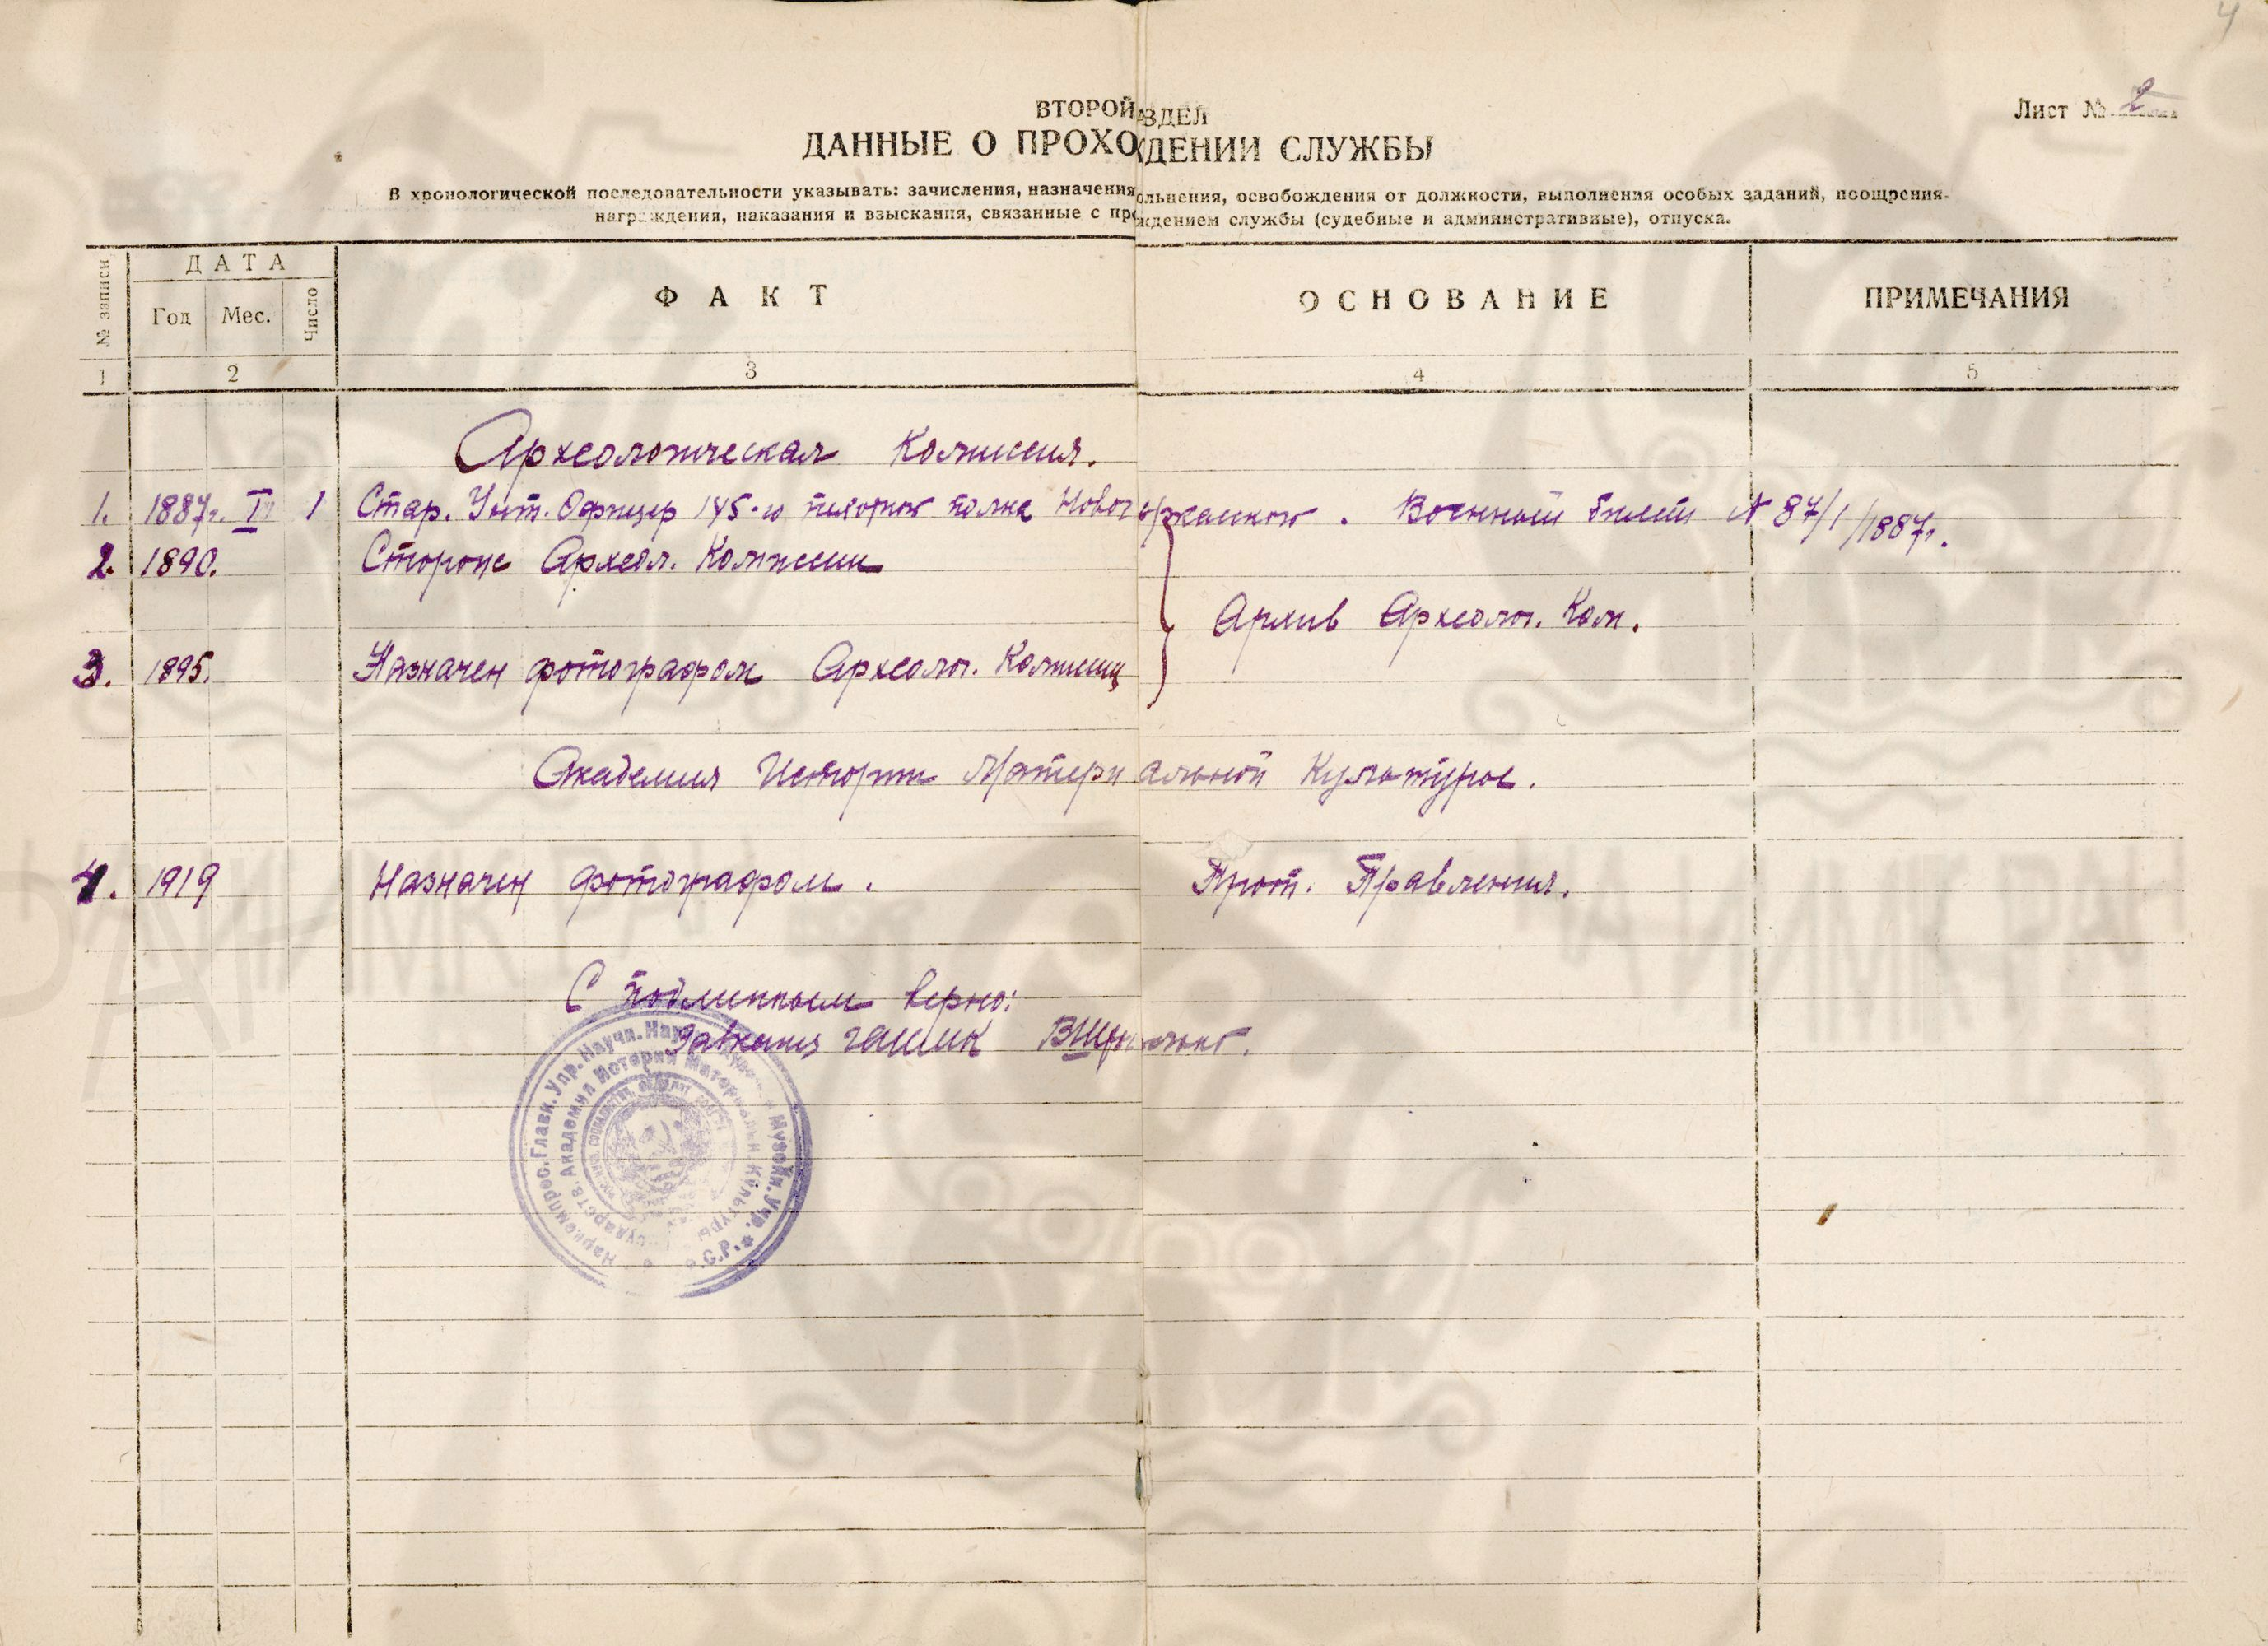 4
Лист № 2
ВТОРОЙ АЗДЕЛ
ДАННЫЕ О ПРОХОЖДЕНИИ СЛУЖБЫ
В хронологической последовательности указывать: зачисления, назначения ольнения, освобождения от должности, выполнения особых заданий, поощрения
награждения, наказания и взыскания, связанные с пр ждением службы (судебные и административные), отпуска.
№ записи
ДАТА
Год Мес. Число
ФАКТ
ОСНОВАНИЕ
ПРИМЕЧАНИЯ
1 2 3 4 5
Археологическая Комиссия.
1. 1887г. I 1 Стар. Унт. Офицер 145-го пехотног полка Новочеркасског. Военный билет № 87/1/1887г.
2. 1890. Сторож Археол. Комиссии
Архив Археолог. Ком.
3. 1895. Назначен фотографом Археолог. Комиссии
Академия Истории Материальной Культуры.
4. 1919 Назначен фотографом. Прот. Правления.
С подлинным верно:
Завканц ГАИМК
Наркомпрос. Главн. Упр. Научн. Музейн. Учр.
Государств. Академия Истории Материальн. Культуры
РАН ИИМК РАН
НА ИИМК РАН